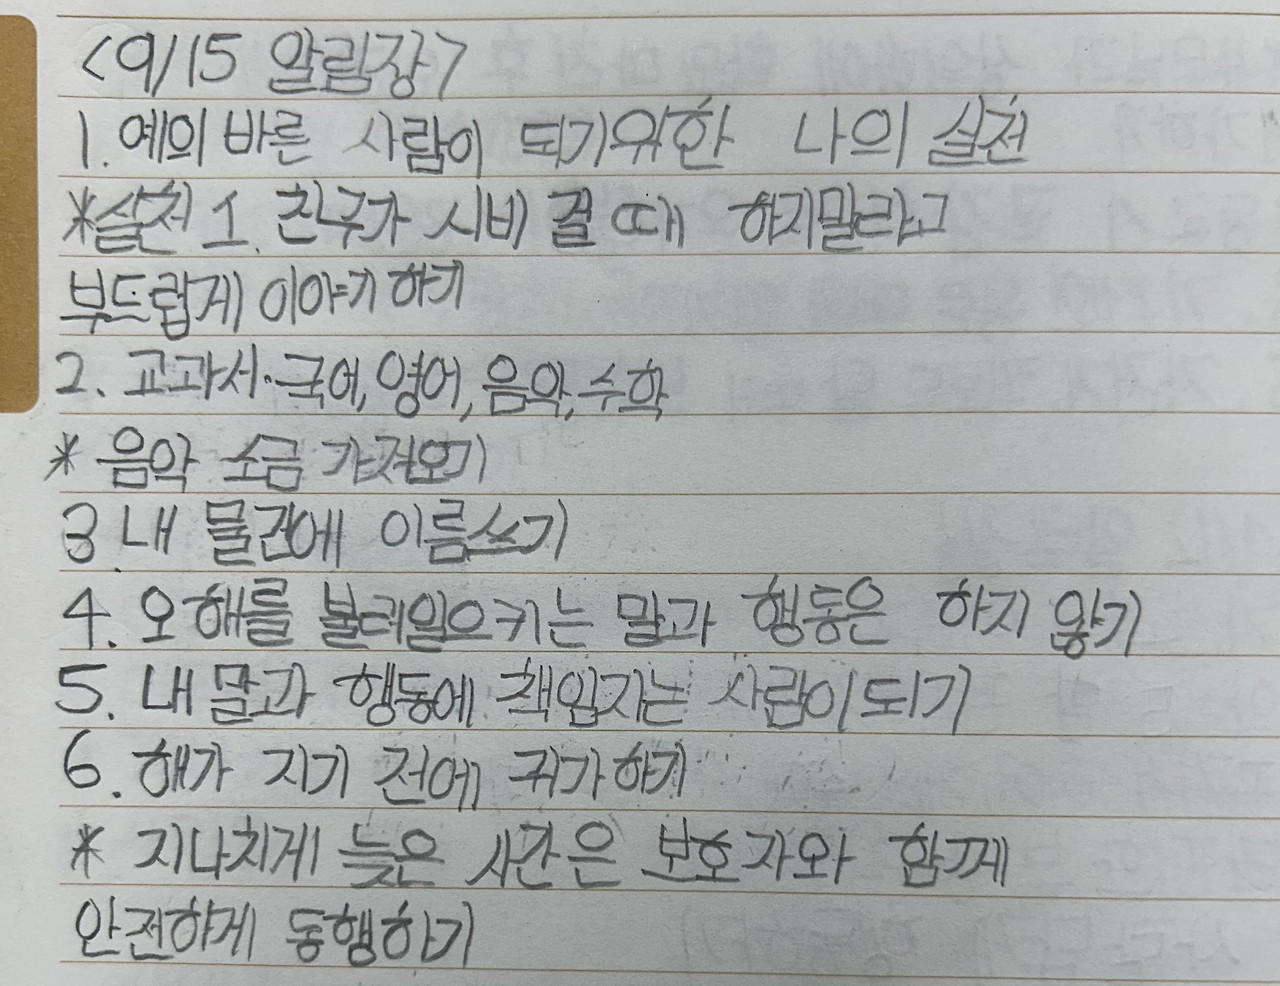 <9/15 알림장>
1. 예의 바른 사람이 되기위한 나의 실천
*실천 1. 친구가 시비 걸 때 하지말라고
부드럽게 이야기 하기
2. 교과서·국어, 영어, 음악, 수학
* 음악 소금 가져오기
3. 내 물건에 이름쓰기
4. 오해를 불러일으키는 말과 행동은 하지 않기
5. 내 말과 행동에 책임지는 사람이 되기
6. 해가 지기 전에 귀가하기
* 지나치게 늦은 시간은 보호자와 함께
안전하게 동행하기